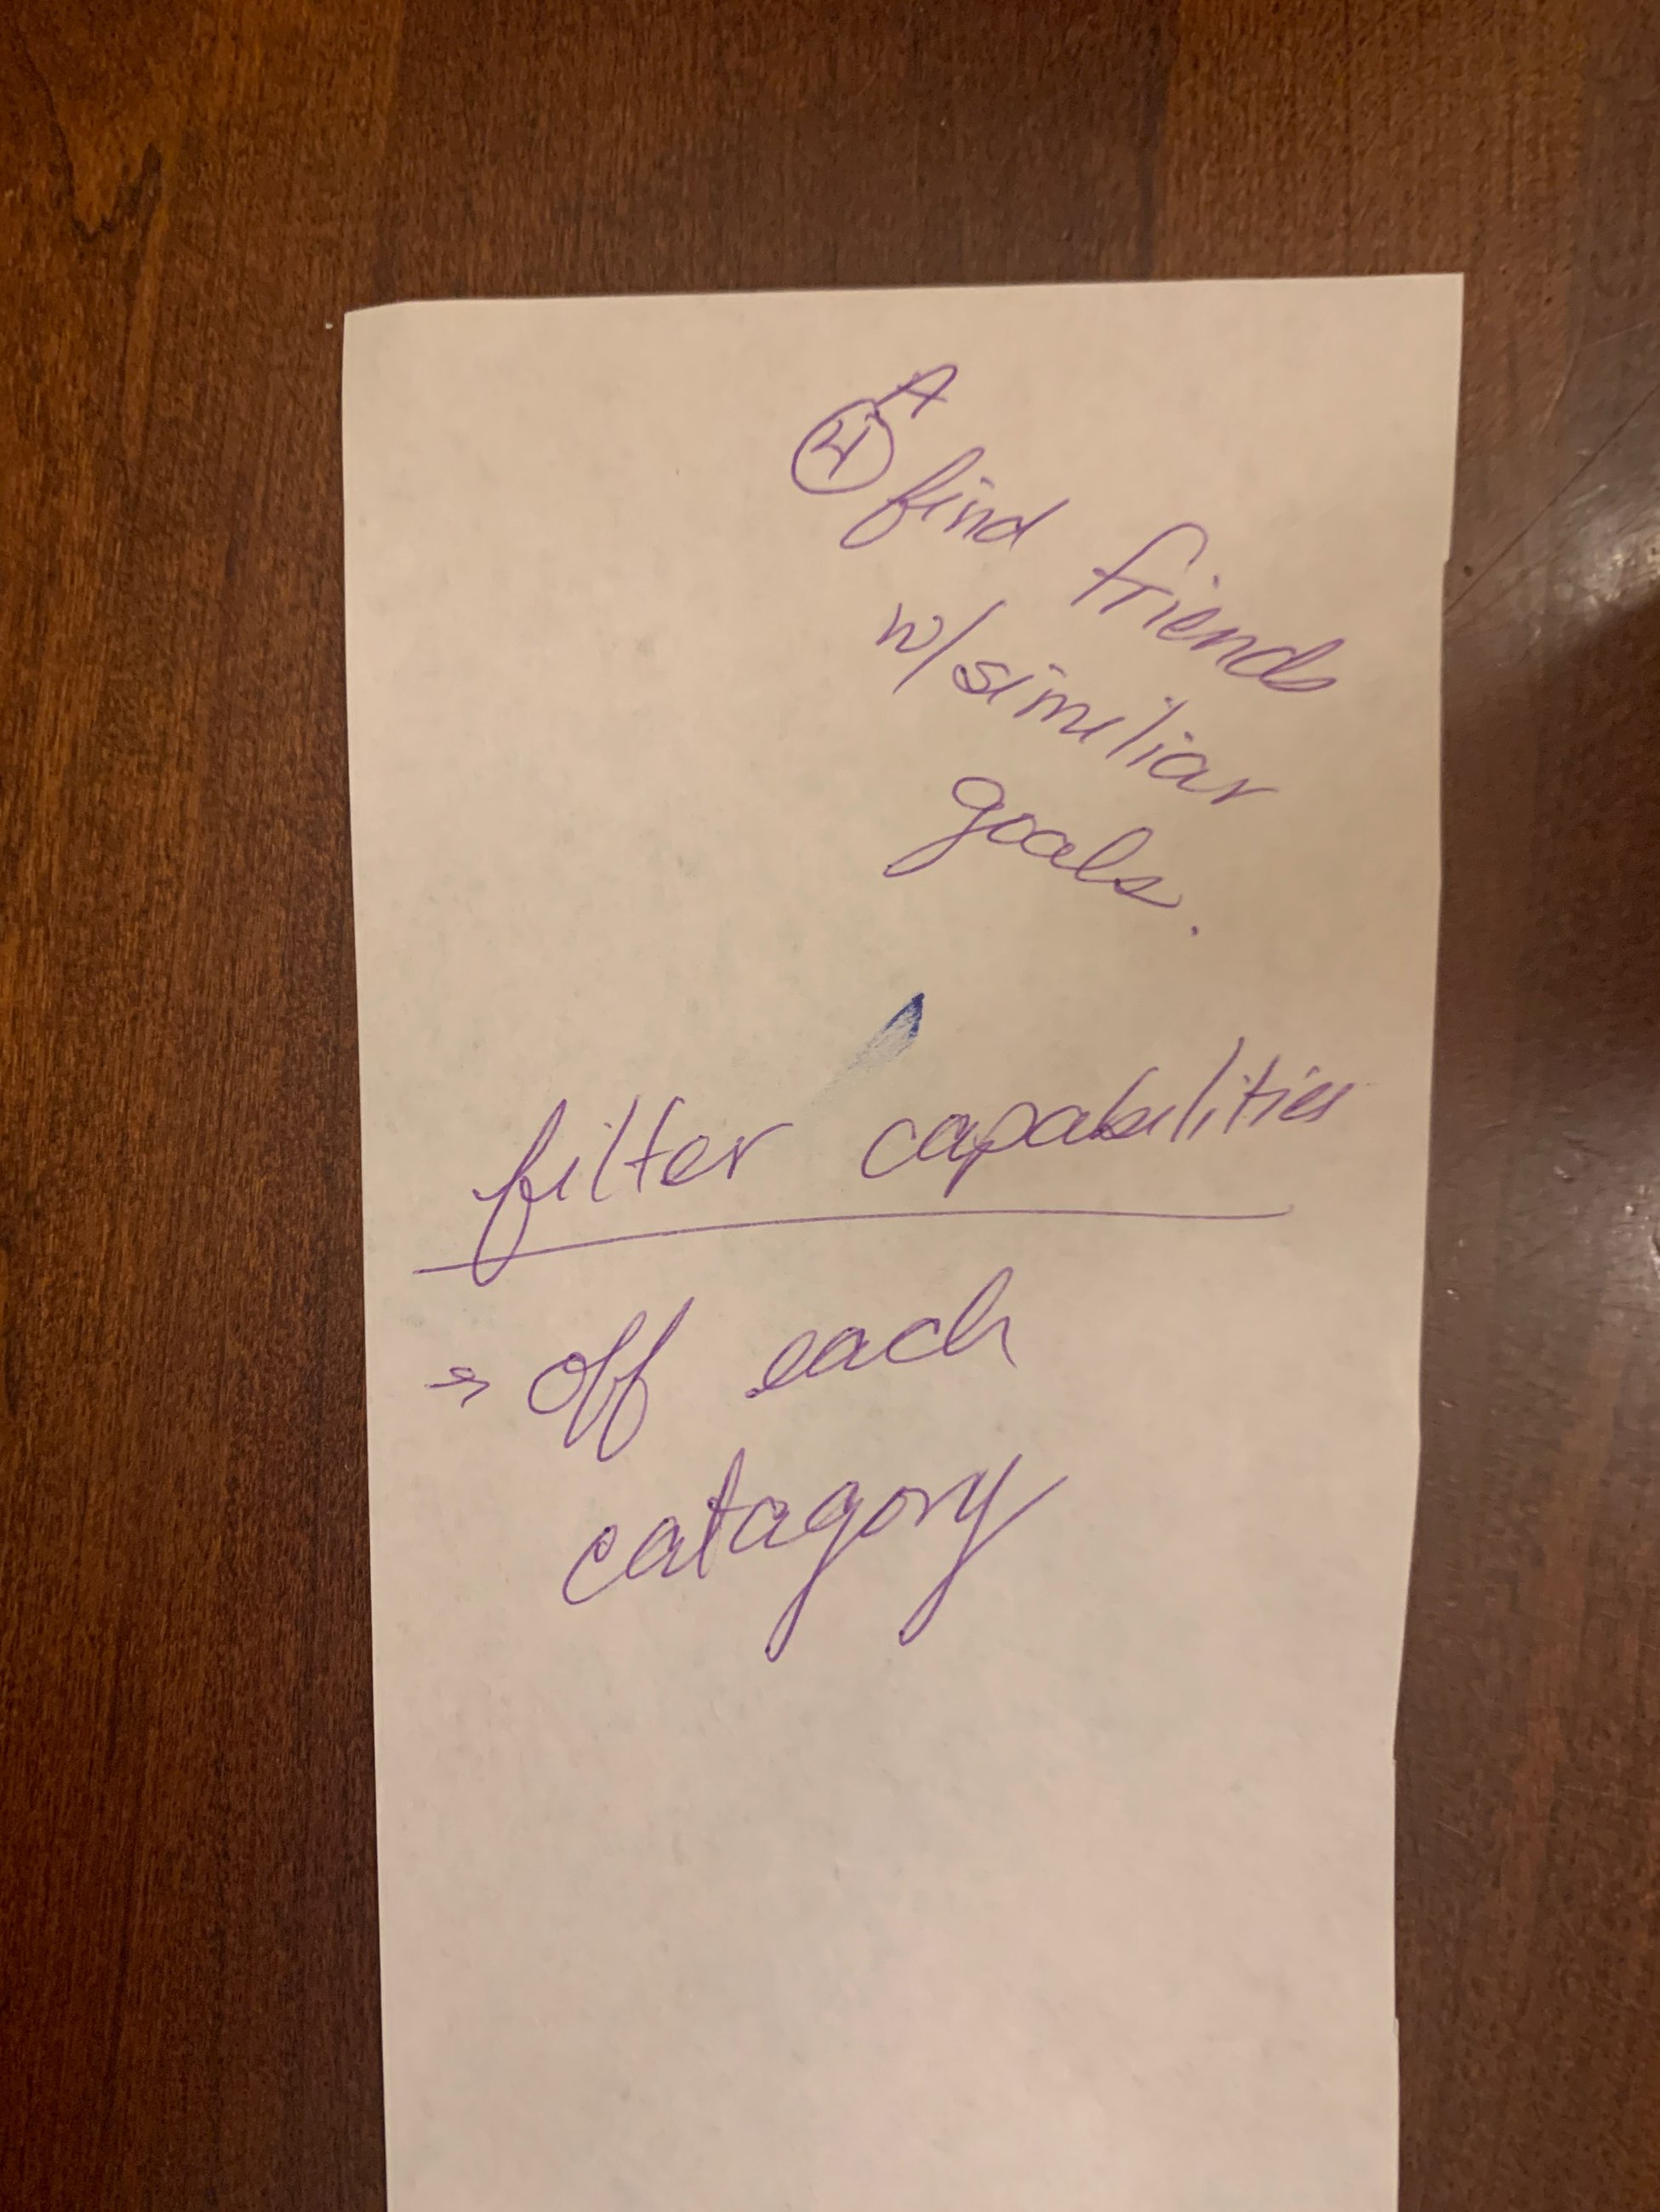 4A
find friends
w/similiar
goals.
filter capabilities
→ off each
catagory